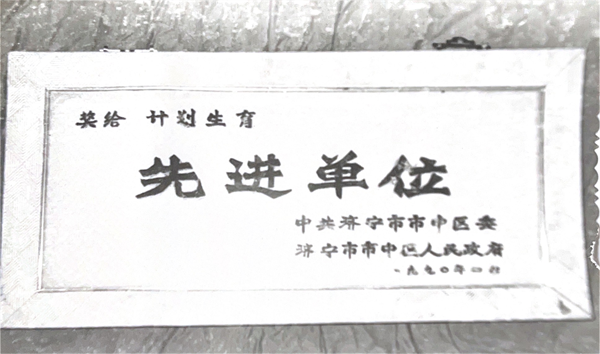 奖给 计划生育
先进单位
中共济宁市市中区委
济宁市市中区人民政府
一九九〇年四月